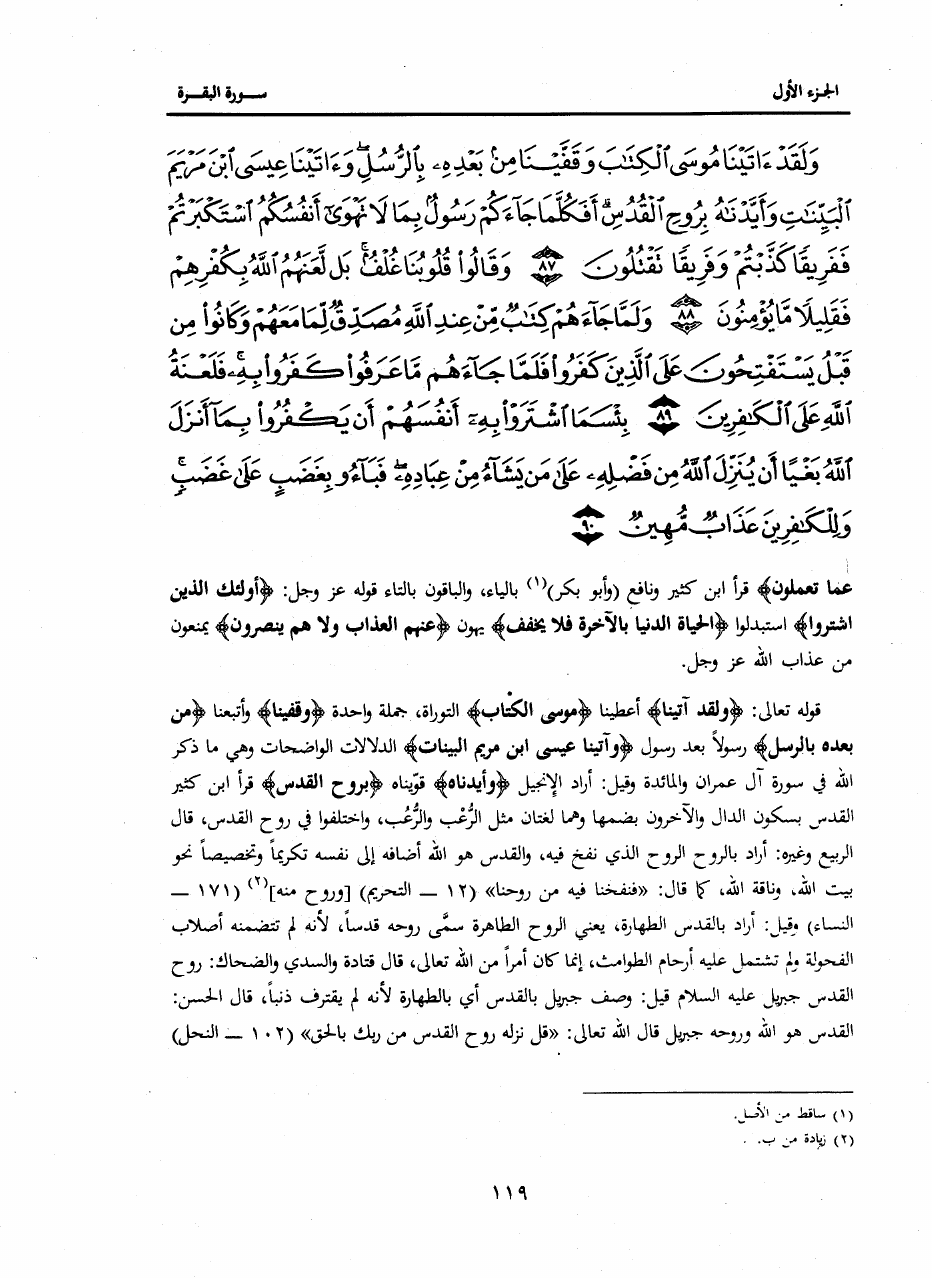 الجزء الأول
سـورة البقـرة
وَلَقَدْ ءَاتَيْنَا مُوسَى ٱلْكِتَٰبَ وَقَفَّيْنَا مِنۢ بَعْدِهِۦ بِٱلرُّسُلِۖ وَءَاتَيْنَا عِيسَى ٱبْنَ مَرْيَمَ
ٱلْبَيِّنَٰتِ وَأَيَّدْنَٰهُ بِرُوحِ ٱلْقُدُسِۗ أَفَكُلَّمَا جَآءَكُمْ رَسُولٌۢ بِمَا لَا تَهْوَىٰٓ أَنفُسُكُمُ ٱسْتَكْبَرْتُمْ
فَفَرِيقًا كَذَّبْتُمْ وَفَرِيقًا تَقْتُلُونَ ٨٧ وَقَالُوا۟ قُلُوبُنَا غُلْفٌۢۚ بَل لَّعَنَهُمُ ٱللَّهُ بِكُفْرِهِمْ
فَقَلِيلًا مَّا يُؤْمِنُونَ ٨٨ وَلَمَّا جَآءَهُمْ كِتَٰبٌ مِّنْ عِندِ ٱللَّهِ مُصَدِّقٌ لِّمَا مَعَهُمْ وَكَانُوا۟ مِن
قَبْلُ يَسْتَفْتِحُونَ عَلَى ٱلَّذِينَ كَفَرُوا۟ فَلَمَّا جَآءَهُم مَّا عَرَفُوا۟ كَفَرُوا۟ بِهِۦۚ فَلَعْنَةُ
ٱللَّهِ عَلَى ٱلْكَٰفِرِينَ ٨٩ بِئْسَمَا ٱشْتَرَوْا۟ بِهِۦٓ أَنفُسَهُمْ أَن يَكْفُرُوا۟ بِمَآ أَنزَلَ
ٱللَّهُ بَغْيًا أَن يُنَزِّلَ ٱللَّهُ مِن فَضْلِهِۦ عَلَىٰ مَن يَشَآءُ مِنْ عِبَادِهِۦۖ فَبَآءُو بِغَضَبٍ عَلَىٰ غَضَبٍۚ
وَلِلْكَٰفِرِينَ عَذَابٌ مُّهِينٌ ٩٠
عما تعملون﴾ قرأ ابن كثير ونافع (وأبو بكر)(١) بالياء، والباقون بالتاء قوله عز وجل: ﴿أولئك الذين
اشتروا﴾ استبدلوا ﴿الحياة الدنيا بالآخرة فلا يخفف﴾ يهون ﴿عنهم العذاب ولا هم ينصرون﴾ يمنعون
من عذاب الله عز وجل.
قوله تعالى: ﴿ولقد آتينا﴾ أعطينا ﴿موسى الكتاب﴾ التوراة، جملة واحدة ﴿وقفينا﴾ وأتبعنا ﴿من
بعده بالرسل﴾ رسولاً بعد رسول ﴿وآتينا عيسى ابن مريم البينات﴾ الدلالات الواضحات وهي ما ذكر
الله في سورة آل عمران والمائدة وقيل: أراد الإنجيل ﴿وأيدناه﴾ قوّيناه ﴿بروح القدس﴾ قرأ ابن كثير
القدس بسكون الدال والآخرون بضمها وهما لغتان مثل الرُّعْب والرُّعُب، واختلفوا في روح القدس، قال
الربيع وغيره: أراد بالروح الروح الذي نفخ فيه، والقدس هو الله أضافه إلى نفسه تكريماً وتخصيصاً نحو
بيت الله، وناقة الله، كما قال: «فنفخنا فيه من روحنا» (١٢ ــ التحريم) [وروح منه](٢) (١٧١ ــ
النساء) وقيل: أراد بالقدس الطهارة، يعني الروح الطاهرة سمَّى روحه قدساً، لأنه لم تتضمنه أصلاب
الفحولة ولم تشتمل عليه أرحام الطوامث، إنما كان أمراً من الله تعالى، قال قتادة والسدي والضحاك: روح
القدس جبريل عليه السلام قيل: وصف جبريل بالقدس أي بالطهارة لأنه لم يقترف ذنباً، قال الحسن:
القدس هو الله وروحه جبريل قال الله تعالى: «قل نزله روح القدس من ربك بالحق» (١٠٢ ــ النحل)
(١) ساقط من الأصل.
(٢) زيادة من ب.
١١٩